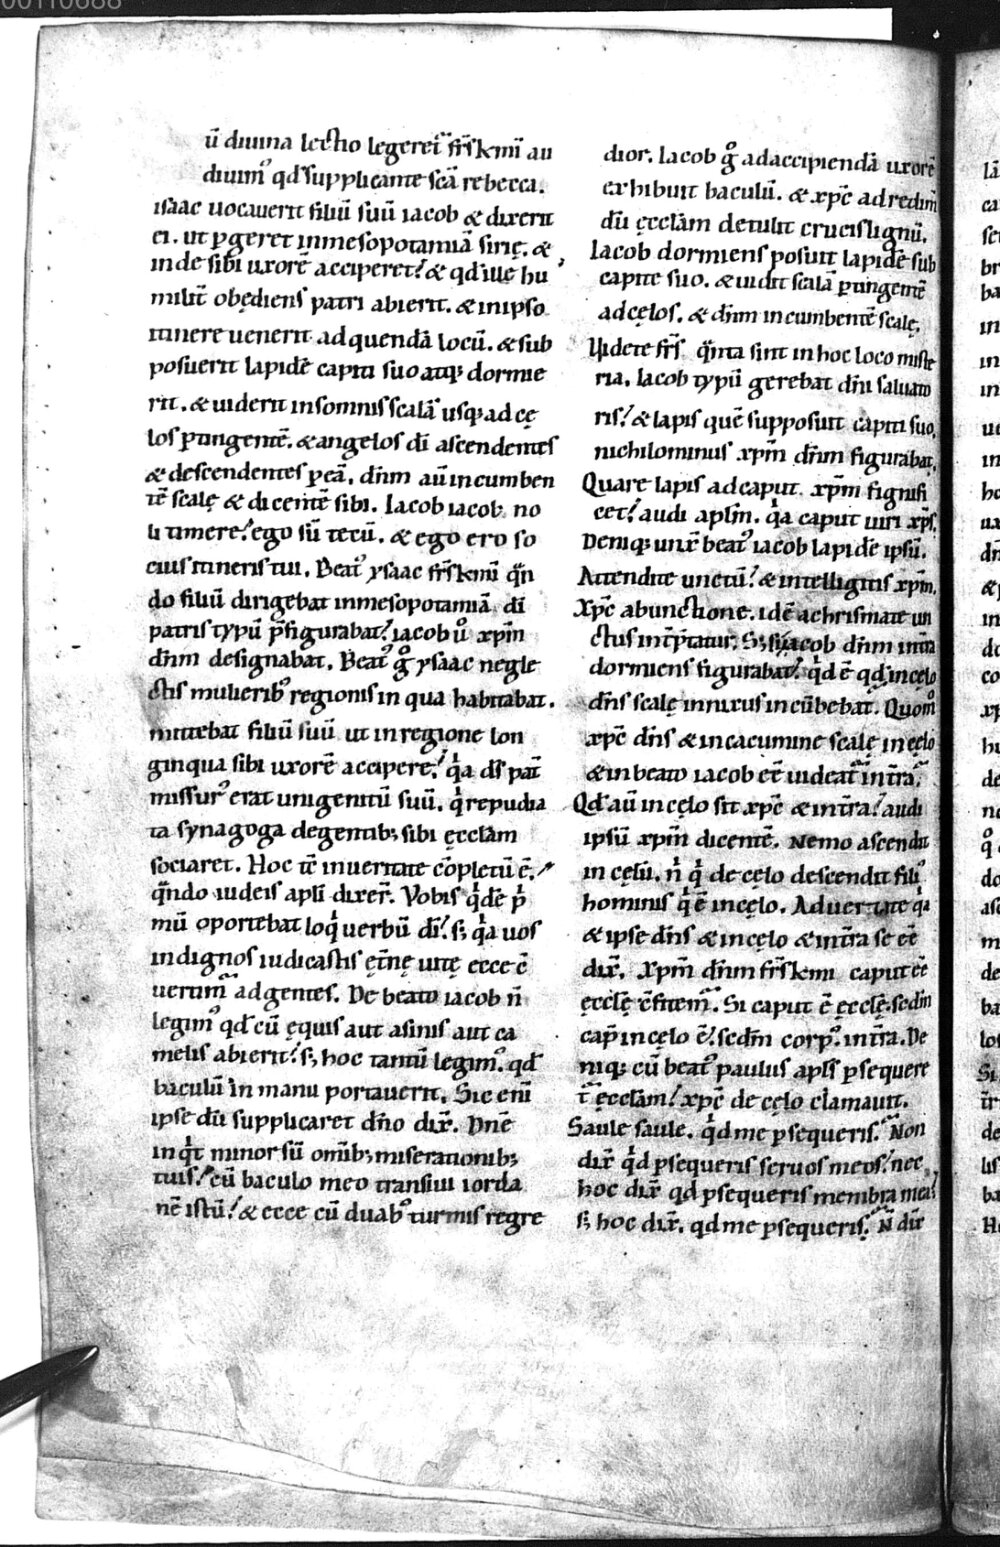 00110688
ū diuina lectio legereť fr̄s km̄i au
diuim᷒ qd̄ supplicante sc̄a rebecca.
isaac uocauerit filiū suū iacob & dixerit
ei. ut ꝑgeret inmesopotamiā sirię. &
inde sibi uxorē acciperet? & qd̄ ille hu
milit̄ obędiens patri abierit. & inipso
itinere uenerit ad quendā locū. & sub
posuerit lapidē capiti suo atq; dormie
rit. & uiderit insomnis scalā usq; ad cę
los ꝑtingentē. & angelos dī ascendentes
& descendentes ꝑ eā. dn̄m aū incumben
tē scalę & dicentē sibi. Iacob iacob. no
li timere? ego sū tecū. & ego ero so
cius itineris tui. Beat᷒ ysaac fr̄s km̄i qn̄
do filiū dirigebat inmesopotamiā. dī
patris typū p̄figurabat? iacob ů xp̄m
dn̄m designabat. Beat᷒ g̊ ysaac negle
ctis mulierib᷒ regionis in qua habitabat.
mittebat filiū suū ut inregione lon
ginqua sibi uxorē accipere? q̓a dſ pat̄
missur᷒ erat unigenitū suū. q̓ repudia
ta synagoga degentib; sibi ęcclam
sociaret. Hoc tē inueritate cōpletū ē.
qn̄do iudeis apl̄i dixer̄. Vobis q̓dē p̓
mū oportebat loq̓ uerbū dī? s; q̓a uos
indignos iudicastis ęt̄nę uitę ecce c̄
uertim̄ ad gentes. De beato iacob n̄
legim᷒ qd̄ cū ęquis aut asinis aut ca
melis abierit? s; hoc tantū legim᷒. qd̄
baculū in manu portauerit. Sic enī
ipse dū supplicaret dn̄o dix̄. Dn̄e
inq̓t minor sū omīb; miserationib;
tuis? cū baculo meo transiui iorda
nē istū? & ecce cū duab᷒ turmis regre
dior. Iacob g̊ ad accipiendā uxorē
exhibuit baculū. & xp̄c ad redim
dū ęcclam detulit crucis lignū.
Iacob dormiens posuit lapidē sub
capite suo. & uidit scalā ꝑtingentē
ad cęlos. & dn̄m incumbentē scalę.
Uidete fr̄s qn̄ta sint in hoc loco miste
ria. Iacob typū gerebat dn̄i saluato
ris? & lapis quē supposuit capiti suo.
nichilominus xp̄m dn̄m figurabat.
Quare lapis ad caput. xp̄m signifi
cet? audi aplm̄. q̓a caput uiri xp̄s.
Deniq; unx̄ beat᷒ iacob lapidē ipsū.
Attendite unctū? & intelligitis xp̄m.
Xp̄c ab unctione. idē a chrismate un
ctus int̄p̄tatur. S; si iacob dn̄m int̄ra
dormiens figurabat? q̓d ē qd̄ in cęlo
dn̄s scalę innixus incūbebat. Quom̊
xp̄c dn̄s & in cacumine scalę in cęlo
& in beato iacob eē uideat̄ in t̄ra?
Qd̄ aū in cęlo sit xp̄c & in t̄ra? audi
ipsū xp̄m dicentē. Nemo ascendit
in cęlū. n̓ q̓ de cęlo descendit fili᷒
hominis q̓ ē in cęlo. Aduertite q̓a
& ipse dn̄s & in cęlo & in t̄ra se eē
dix̄. Xp̄m dn̄m fr̄s km̄i caput eē
ęcclę c̄fitem̄. Si caput ē ęcclę. sedm̄
cap̄ in cęlo ē? sedm̄ corp᷒. in t̄ra. De
niq; cū beat᷒ paulus apl̄s ꝑsequere
t̄ ęcclam? xp̄c de cęlo clamauit.
Saule saule. q̓d me ꝑsequeris? Non
dix̄ q̓d ꝑsequeris seruos meos? nec
hoc dix̄ qd̄ ꝑsequeris membra mea?
s; hoc dix̄. qd̄ me ꝑsequeris? N̄ dix̄